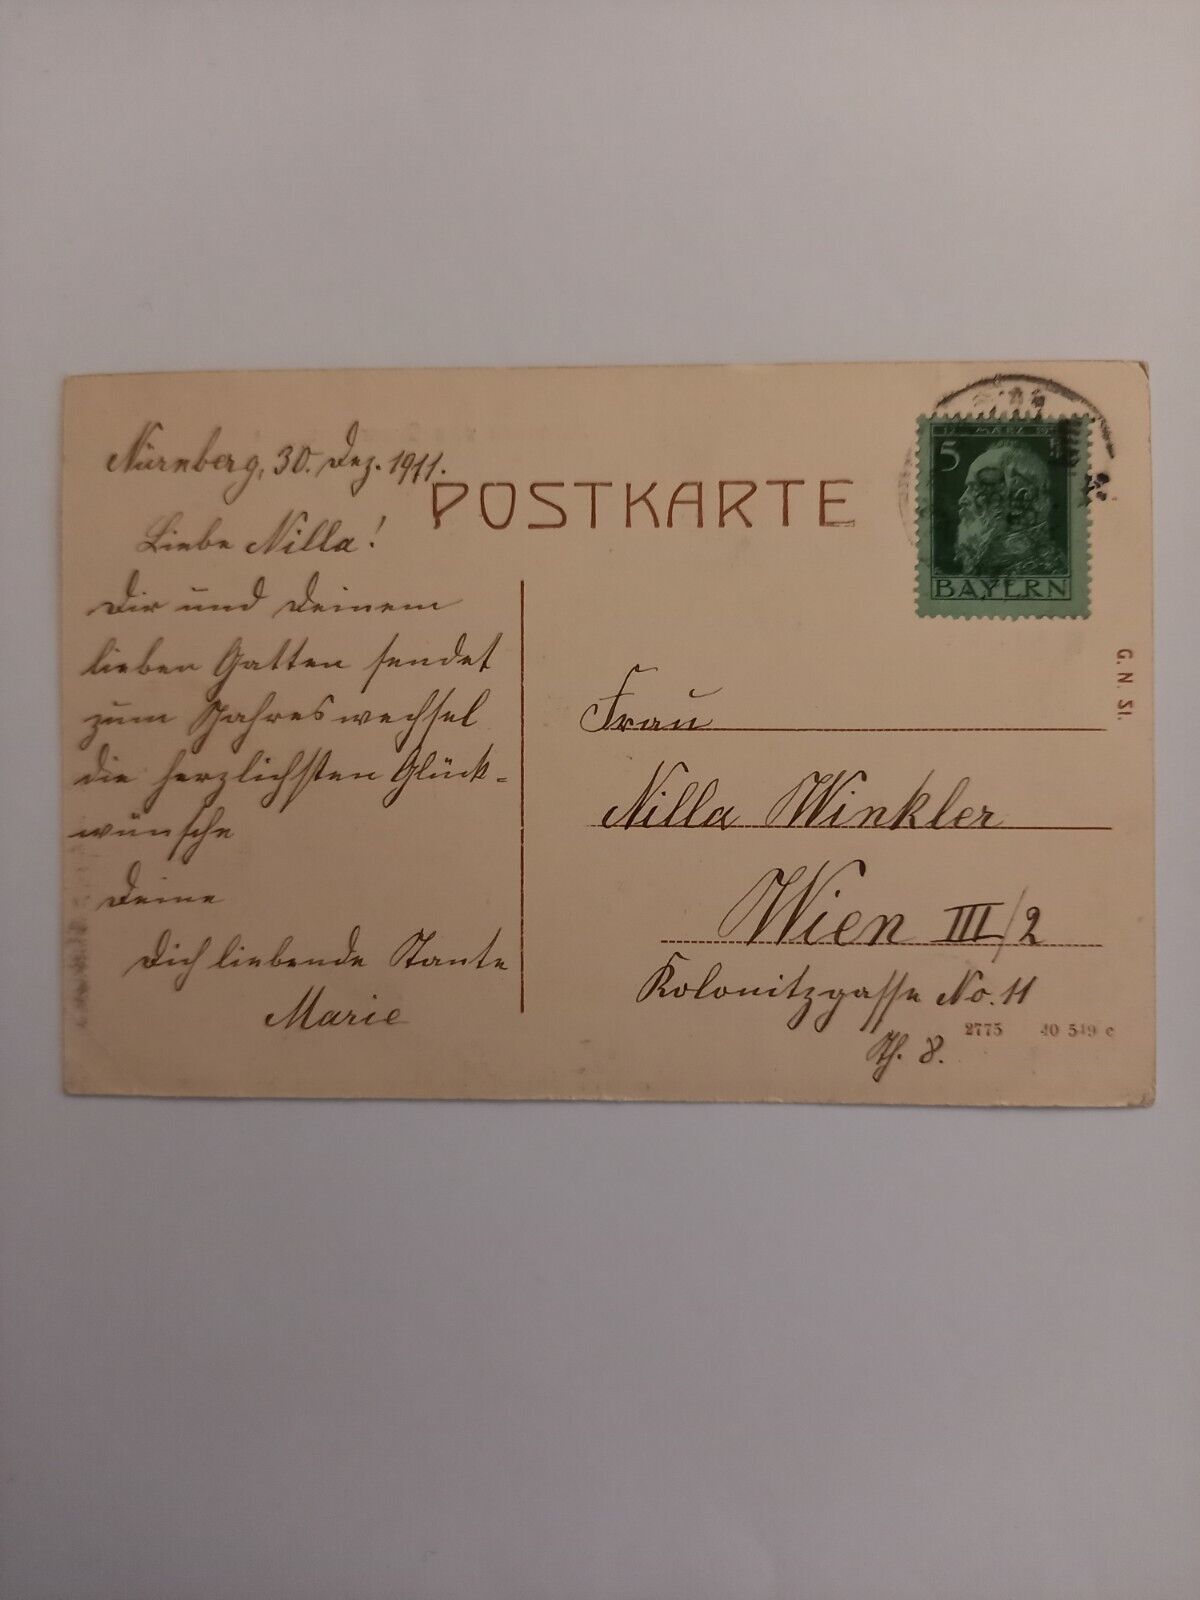 Nürnberg, 30. Dez. 1911.
Liebe Nilla!
Dir und Deinem
lieben Gatten sendet
zum Jahreswechsel
die herzlichsten Glück-
wünsche
Deine
Dich liebende Tante
Marie
POSTKARTE
12. MÄRZ
5
BAYERN
G. N. SI.
Frau
Nilla Winkler
Wien III/2
Kolonitzgasse No. 11
Th. 8.
2775 40 549 c